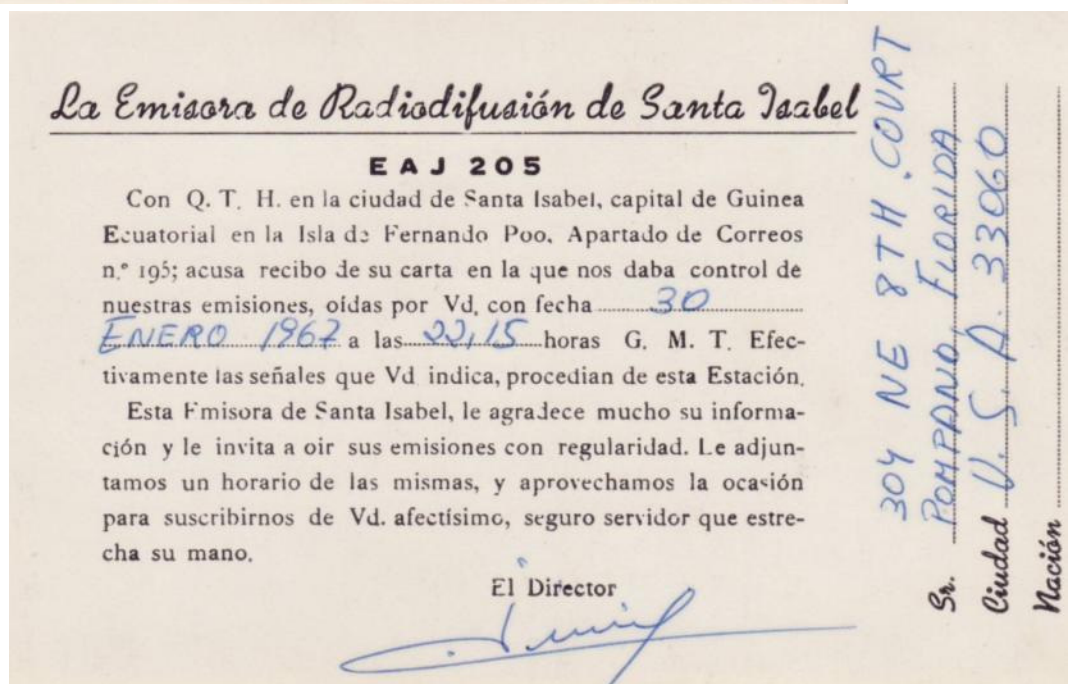 La Emisora de Radiodifusión de Santa Isabel
EAJ 205
Con Q. T. H. en la ciudad de Santa Isabel, capital de Guinea
Ecuatorial en la Isla de Fernando Poo. Apartado de Correos
n.º 195; acusa recibo de su carta en la que nos daba control de
nuestras emisiones, oídas por Vd. con fecha 30
ENERO 1967 a las 22,15 horas G. M. T. Efec-
tivamente las señales que Vd indica, procedian de esta Estación.
Esta Emisora de Santa Isabel, le agradece mucho su informa-
ción y le invita a oir sus emisiones con regularidad. Le adjun-
tamos un horario de las mismas, y aprovechamos la ocasión
para suscribirnos de Vd. afectísimo, seguro servidor que estre-
cha su mano.
El Director
304 NE 8TH COURT
Sr. POMPANO, FLORIDA
Ciudad U. S. A. 33060
Nación